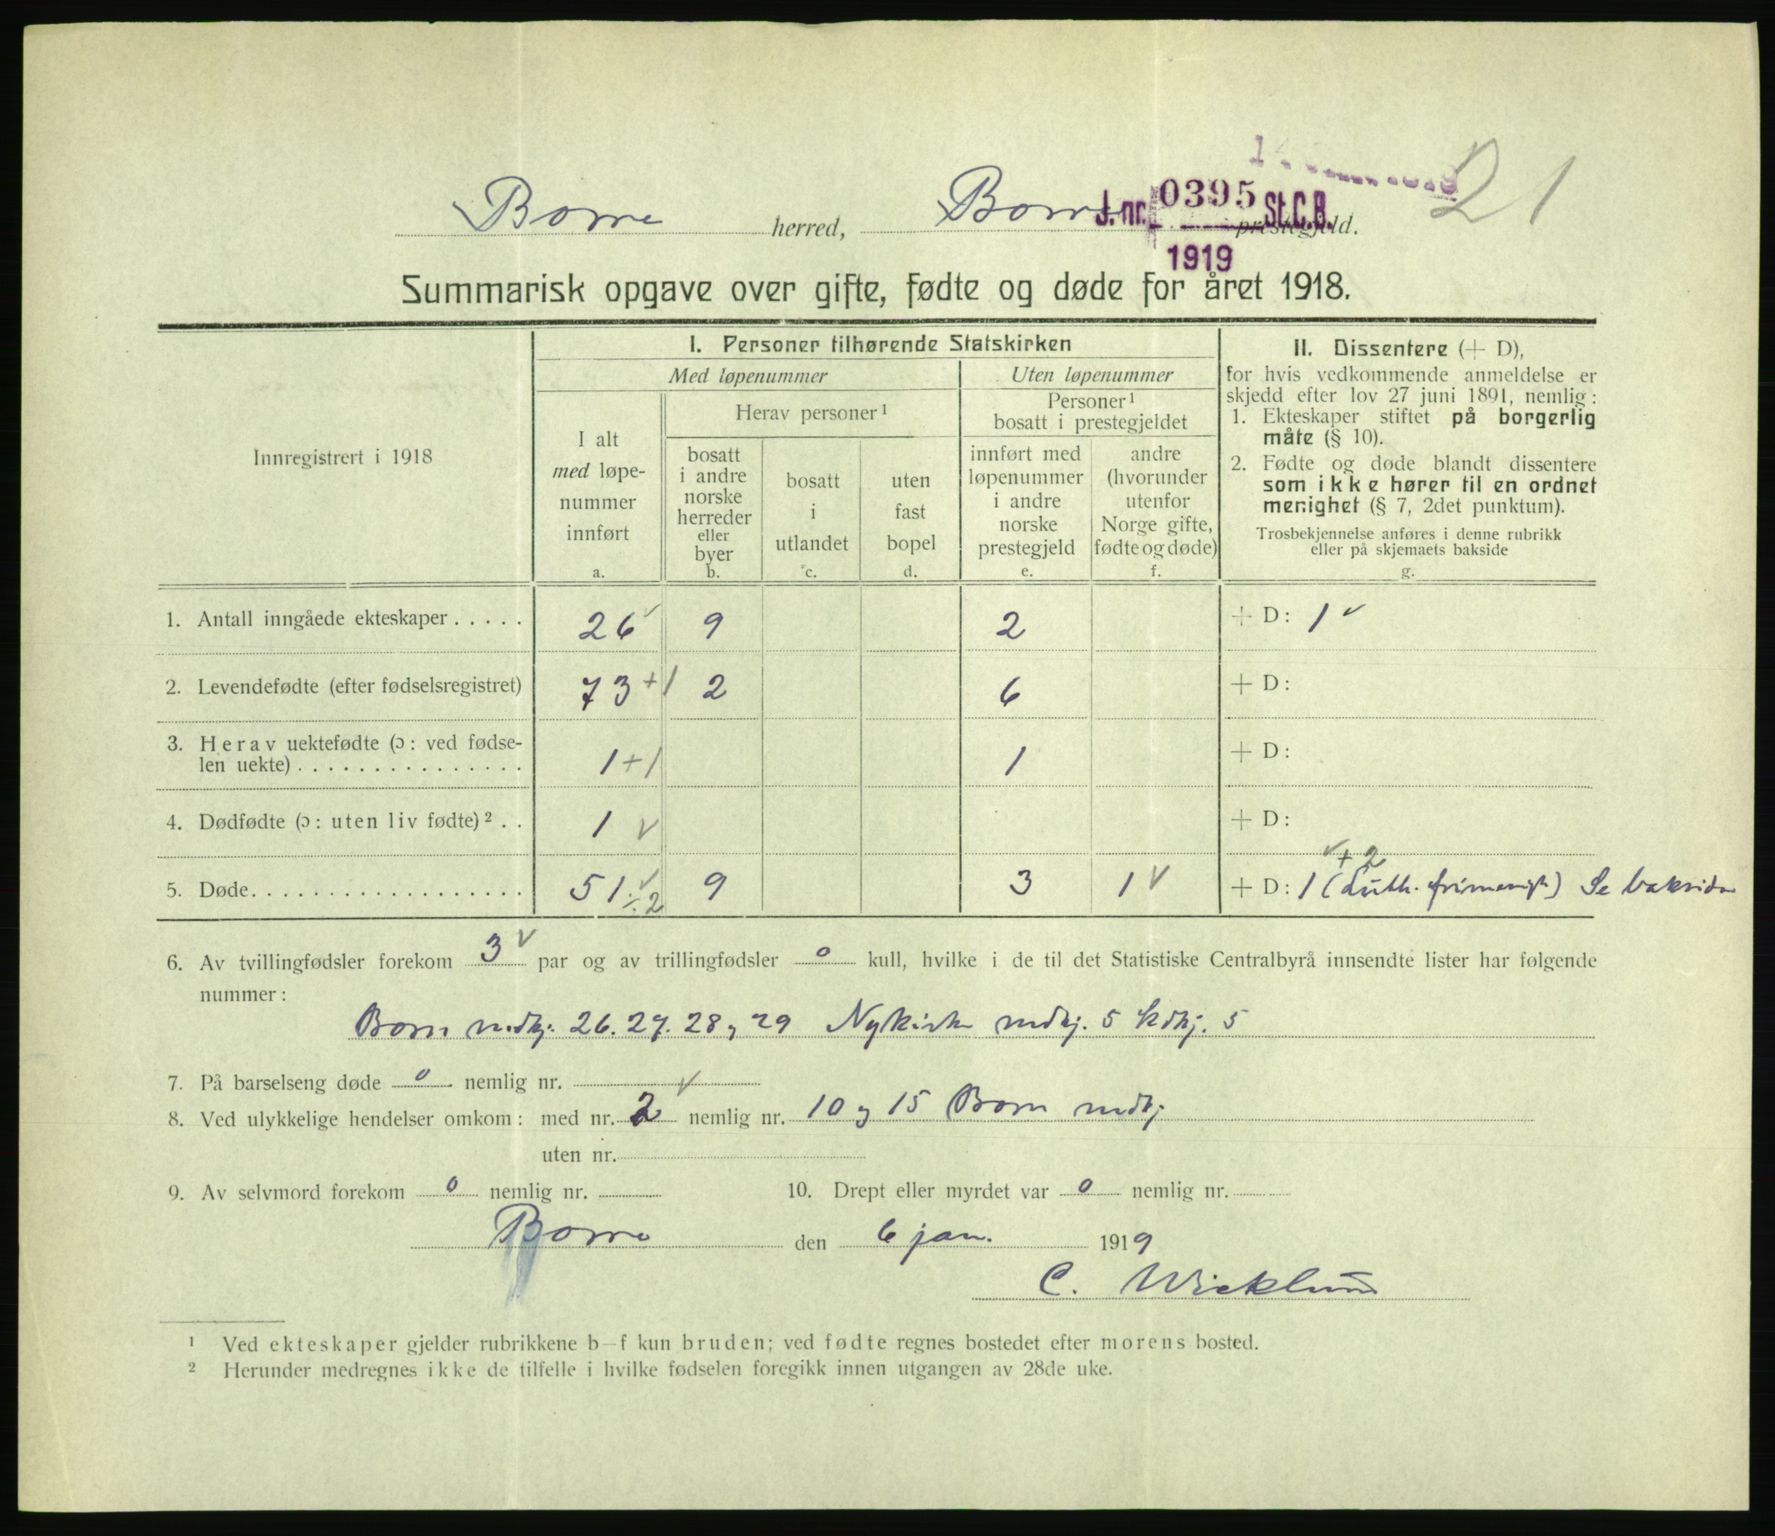 Borre herred, Borre prestegjeld.
J. nr. 0395 St.C.B.
1919
21
Summarisk opgave over gifte, fødte og døde for året 1918.
Innregistrert i 1918
I. Personer tilhørende Statskirken
Med løpenummer
Uten løpenummer
I alt
med løpe-
nummer
innført
a.
Herav personer ¹
bosatt
i andre
norske
herreder
eller
byer
b.
bosatt
i
utlandet
c.
uten
fast
bopel
d.
Personer ¹
bosatt i prestegjeldet
innført med
løpenummer
i andre
norske
prestegjeld
e.
andre
(hvorunder
utenfor
Norge gifte,
fødte og døde)
f.
II. Dissentere (+ D),
for hvis vedkommende anmeldelse er
skjedd efter lov 27 juni 1891, nemlig:
1. Ekteskaper stiftet på borgerlig
måte (§ 10).
2. Fødte og døde blandt dissentere
som ikke hører til en ordnet
menighet (§ 7, 2det punktum).
Trosbekjennelse anføres i denne rubrikk
eller på skjemaets bakside
g.
1. Antall inngåede ekteskaper..... 26 ✓ 9 2 + D: 1 ✓
2. Levendefødte (efter fødselsregistret) 73 +1 2 6 + D:
3. Herav uektefødte (ɔ: ved fødse-
len uekte)............... 1 +1 1 + D:
4. Dødfødte (ɔ: uten liv fødte) ² .. 1 ✓ + D:
✓ + 2
5. Døde.................. 51 ✓ ÷2 9 3 1 ✓ + D: 1 (Luth. frimenigh.) Se baksiden
6. Av tvillingfødsler forekom 3 ✓ par og av trillingfødsler 0 kull, hvilke i de til det Statistiske Centralbyrå innsendte lister har følgende
nummer:
Borre mdkj. 26. 27. 28 og 29 Nykirke mdkj. 5 kdkj. 5
7. På barselseng døde 0 nemlig nr. ✓
8. Ved ulykkelige hendelser omkom: med nr. 2 nemlig nr. 10 og 15 Borre mdkj
uten nr.
9. Av selvmord forekom 0 nemlig nr. 10. Drept eller myrdet var 0 nemlig nr.
Borre den 6 jan. 1919
C. Wicklund
¹ Ved ekteskaper gjelder rubrikkene b—f kun bruden; ved fødte regnes bostedet efter morens bosted.
² Herunder medregnes ikke de tilfelle i hvilke fødselen foregikk innen utgangen av 28de uke.